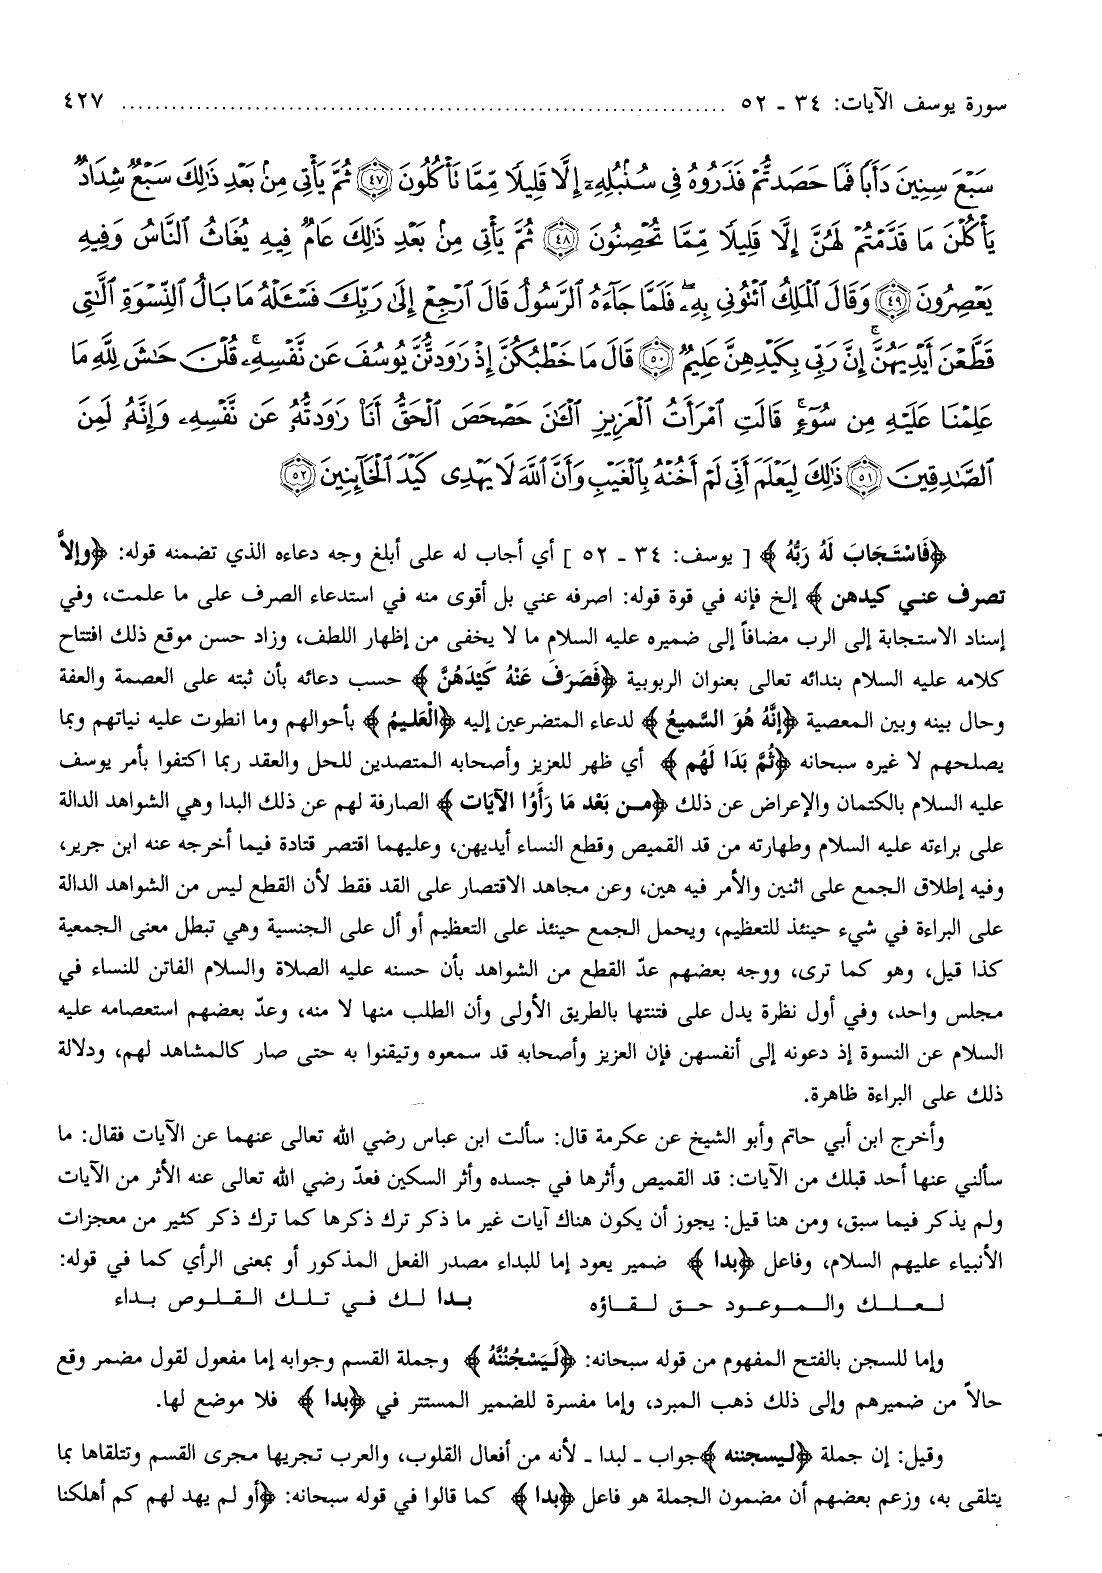 سورة يوسف الآيات: ٣٤ ـ ٥٢ ........................................ ٤٢٧
سَبْعَ سِنِينَ دَأَبًا فَمَا حَصَدتُّمْ فَذَرُوهُ فِي سُنۢبُلِهِۦٓ إِلَّا قَلِيلًا مِّمَّا نَأْكُلُونَ ﴿٤٧﴾ ثُمَّ يَأْتِي مِنۢ بَعْدِ ذَٰلِكَ سَبْعٌ شِدَادٌ
يَأْكُلْنَ مَا قَدَّمْتُمْ لَهُنَّ إِلَّا قَلِيلًا مِّمَّا تُحْصِنُونَ ﴿٤٨﴾ ثُمَّ يَأْتِي مِنۢ بَعْدِ ذَٰلِكَ عَامٌ فِيهِ يُغَاثُ ٱلنَّاسُ وَفِيهِ
يَعْصِرُونَ ﴿٤٩﴾ وَقَالَ ٱلْمَلِكُ ٱئْتُونِي بِهِۦۖ فَلَمَّا جَآءَهُ ٱلرَّسُولُ قَالَ ٱرْجِعْ إِلَىٰ رَبِّكَ فَسْـَٔلْهُ مَا بَالُ ٱلنِّسْوَةِ ٱلَّـٰتِي
قَطَّعْنَ أَيْدِيَهُنَّۚ إِنَّ رَبِّي بِكَيْدِهِنَّ عَلِيمٌ ﴿٥٠﴾ قَالَ مَا خَطْبُكُنَّ إِذْ رَٰوَدتُّنَّ يُوسُفَ عَن نَّفْسِهِۦۚ قُلْنَ حَـٰشَ لِلَّهِ مَا
عَلِمْنَا عَلَيْهِ مِن سُوٓءٍۚ قَالَتِ ٱمْرَأَتُ ٱلْعَزِيزِ ٱلْـَٰٔنَ حَصْحَصَ ٱلْحَقُّ أَنَا۠ رَٰوَدتُّهُۥ عَن نَّفْسِهِۦ وَإِنَّهُۥ لَمِنَ
ٱلصَّـٰدِقِينَ ﴿٥١﴾ ذَٰلِكَ لِيَعْلَمَ أَنِّي لَمْ أَخُنْهُ بِٱلْغَيْبِ وَأَنَّ ٱللَّهَ لَا يَهْدِي كَيْدَ ٱلْخَآئِنِينَ ﴿٥٢﴾
﴿فَاسْتَجَابَ لَهُ رَبُّهُ﴾ [يوسف: ٣٤ ـ ٥٢] أي أجاب له على أبلغ وجه دعاءه الذي تضمنه قوله: ﴿وإلاَّ
تصرف عني كيدهن﴾ إلخ فإنه في قوة قوله: اصرفه عني بل أقوى منه في استدعاء الصرف على ما علمت، وفي
إسناد الاستجابة إلى الرب مضافاً إلى ضميره عليه السلام ما لا يخفى من إظهار اللطف، وزاد حسن موقع ذلك افتتاح
كلامه عليه السلام بندائه تعالى بعنوان الربوبية ﴿فَصَرَفَ عَنْهُ كَيْدَهُنَّ﴾ حسب دعائه بأن ثبته على العصمة والعفة
وحال بينه وبين المعصية ﴿إنَّهُ هُوَ السَّميعُ﴾ لدعاء المتضرعين إليه ﴿الْعَليمُ﴾ بأحوالهم وما انطوت عليه نياتهم وبما
يصلحهم لا غيره سبحانه ﴿ثُمَّ بَدَا لَهُم﴾ أي ظهر للعزيز وأصحابه المتصدين للحل والعقد ربما اكتفوا بأمر يوسف
عليه السلام بالكتمان والإعراض عن ذلك ﴿من بَعْد مَا رَأَوُا الآيَات﴾ الصارفة لهم عن ذلك البدا وهي الشواهد الدالة
على براءته عليه السلام وطهارته من قد القميص وقطع النساء أيديهن، وعليهما اقتصر قتادة فيما أخرجه عنه ابن جرير،
وفيه إطلاق الجمع على اثنين والأمر فيه هين، وعن مجاهد الاقتصار على القد فقط لأن القطع ليس من الشواهد الدالة
على البراءة في شيء حينئذ للتعظيم، ويحمل الجمع حينئذ على التعظيم أو أل على الجنسية وهي تبطل معنى الجمعية
كذا قيل، وهو كما ترى، ووجه بعضهم عدّ القطع من الشواهد بأن حسنه عليه الصلاة والسلام الفاتن للنساء في
مجلس واحد، وفي أول نظرة يدل على فتنتها بالطريق الأولى وأن الطلب منها لا منه، وعدّ بعضهم استعصامه عليه
السلام عن النسوة إذ دعونه إلى أنفسهن فإن العزيز وأصحابه قد سمعوه وتيقنوا به حتى صار كالمشاهد لهم، ودلالة
ذلك على البراءة ظاهرة.
وأخرج ابن أبي حاتم وأبو الشيخ عن عكرمة قال: سألت ابن عباس رضي الله تعالى عنهما عن الآيات فقال: ما
سألني عنها أحد قبلك من الآيات: قد القميص وأثرها في جسده وأثر السكين فعدّ رضي الله تعالى عنه الأثر من الآيات
ولم يذكر فيما سبق، ومن هنا قيل: يجوز أن يكون هناك آيات غير ما ذكر ترك ذكرها كما ترك ذكر كثير من معجزات
الأنبياء عليهم السلام، وفاعل ﴿بدا﴾ ضمير يعود إما للبداء مصدر الفعل المذكور أو بمعنى الرأي كما في قوله:
لعلك والموعود حق لقاؤه بدا لك في تلك القلوص بداء
وإما للسجن بالفتح المفهوم من قوله سبحانه: ﴿لَيَسْجُنُنَّهُ﴾ وجملة القسم وجوابه إما مفعول لقول مضمر وقع
حالاً من ضميرهم وإلى ذلك ذهب المبرد، وإما مفسرة للضمير المستتر في ﴿بدا﴾ فلا موضع لها.
وقيل: إن جملة ﴿ليسجننه﴾جواب ـ لبدا ـ لأنه من أفعال القلوب، والعرب تجريها مجرى القسم وتتلقاها بما
يتلقى به، وزعم بعضهم أن مضمون الجملة هو فاعل ﴿بدا﴾ كما قالوا في قوله سبحانه: ﴿أو لم يهد لهم كم أهلكنا